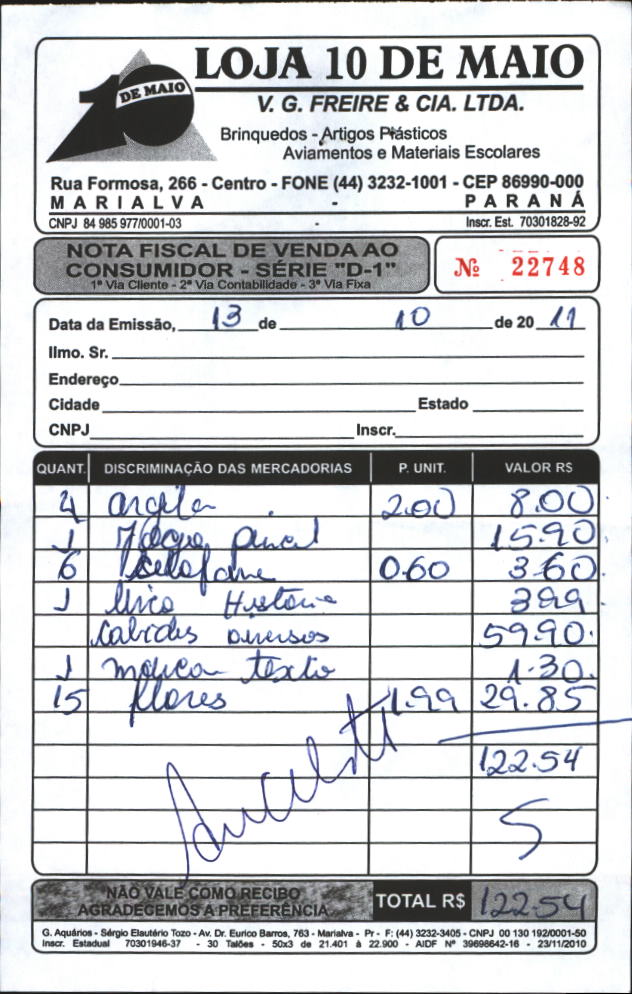 10 DE MAIO
LOJA 10 DE MAIO
V. G. FREIRE & CIA. LTDA.
Brinquedos - Artigos Plásticos
Aviamentos e Materiais Escolares
Rua Formosa, 266 - Centro - FONE (44) 3232-1001 - CEP 86990-000
MARIALVA - PARANÁ
CNPJ 84 985 977/0001-03 - Inscr. Est. 70301828-92
NOTA FISCAL DE VENDA AO
CONSUMIDOR - SÉRIE "D-1"
1ª Via Cliente - 2ª Via Contabilidade - 3ª Via Fixa
Nº 22748
Data da Emissão, 13 de 10 de 20 11
Ilmo. Sr.
Endereço
Cidade Estado
CNPJ Inscr.
QUANT. DISCRIMINAÇÃO DAS MERCADORIAS P. UNIT. VALOR R$
4 argila 2.00 8.00
1 pincel 15.90
6 selofane 0.60 3.60
1 livro Historia 3.99
cabides diversos 59.90
1 marca texto 1.30
15 flores 1.99 29.85
122.54
NÃO VALE COMO RECIBO
AGRADECEMOS A PREFERÊNCIA
TOTAL R$ 122.54
G. Aquários - Sérgio Elautério Tozo - Av. Dr. Eurico Barros, 763 - Marialva - Pr - F: (44) 3232-3405 - CNPJ 00 130 192/0001-50
Inscr. Estadual 70301946-37 - 30 Talões - 50x3 de 21.401 à 22.900 - AIDF Nº 39698642-16 - 23/11/2010